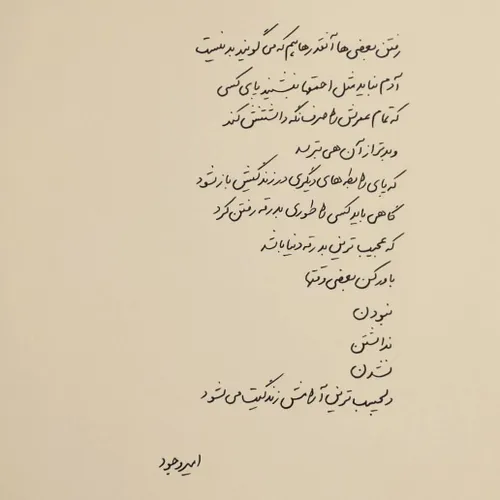 رفتن بعضی ها آنقدرها هم که می گویند بد نیست
آدم نباید مثل احمقها بنشیند پای کسی
که تمام عمرش را صرف نگه داشتنش کند
و بدتر از آن هی بترسد
که پای رابطه های دیگری در زندگیش باز نشود
گاهی باید کسی را طوری بدرقه رفتن کرد
که عجیب ترین بدرقه دنیا باشد
باور کن بعضی وقتها
نبودن
نداشتن
نشدن
دلچسب ترین آرامش زندگیت می شود
امیر وجود